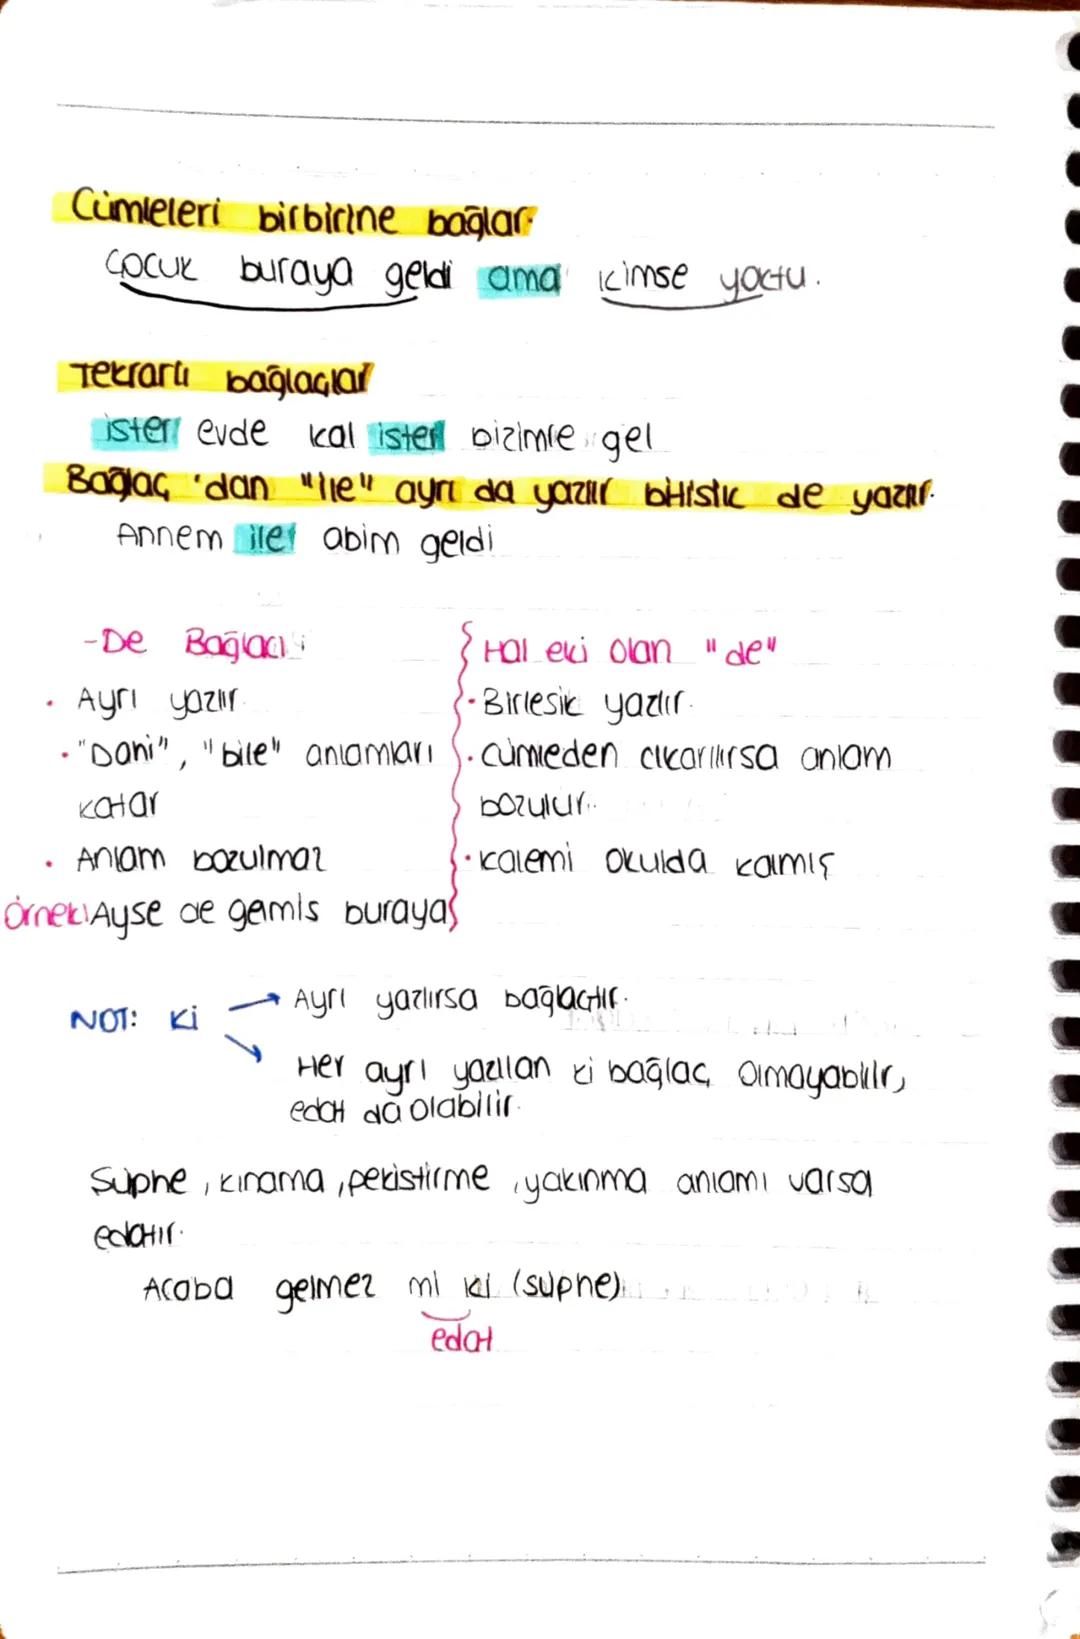 Cümleleri birbirine bağlar.
Çocuk buraya geldi ama kimse yoktu.
Tekrarlı bağlaçlar
ister evde kal ister bizimle gel
Bağlaç 'dan "ile" ayrı da yazılır bitişik de yazılır.
Annem ile abim geldi
-De Bağlacı
• Ayrı yazılır.
• "Dahi", "bile" anlamları
katar
• Anlam bozulmaz
Örnek: Ayşe de gelmiş buraya
Hal eki olan "de"
• Birleşik yazılır.
• Cümleden çıkarılırsa anlam
bozulur.
• Kalemi okulda kalmış
NOT: Ki → Ayrı yazılırsa bağlaçtır.
→ Her ayrı yazılan ki bağlaç olmayabilir,
edat da olabilir.
Şüphe, kınama, pekiştirme, yakınma anlamı varsa
edattır.
Acaba gelmez mi ki (şüphe)
edat